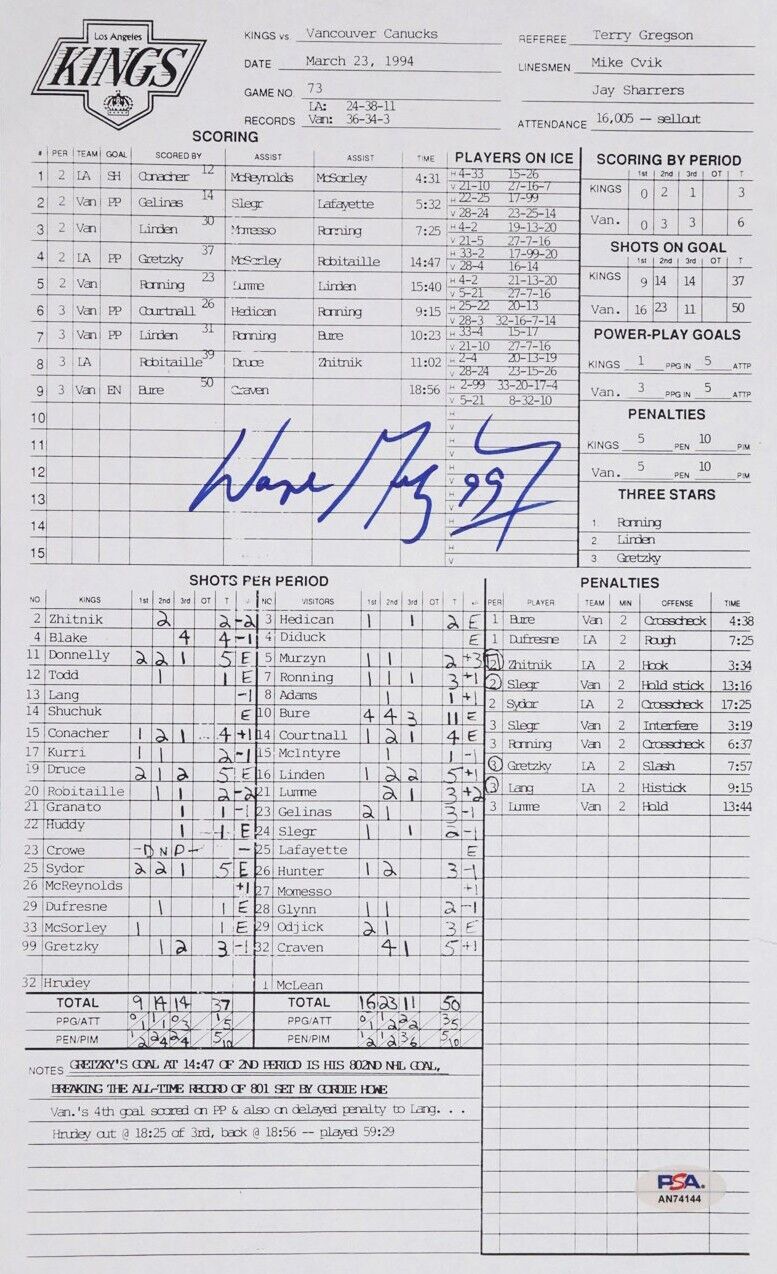 Los Angeles
KINGS
KINGS vs Vancouver Canucks
DATE March 23, 1994
GAME NO. 73
LA: 24-38-11
RECORDS Van: 36-34-3
REFEREE Terry Gregson
LINESMEN Mike Cvik
Jay Sharrers
ATTENDANCE 16,005 -- sellout
SCORING
# PER TEAM GOAL SCORED BY ASSIST ASSIST TIME PLAYERS ON ICE
1 2 LA SH Conacher 12 McReynolds McSorley 4:31 H 4-33 15-26
V 21-10 27-16-7
2 2 Van PP Gelinas 14 Slegr Lafayette 5:32 H 22-25 17-99
V 28-24 23-25-14
3 2 Van Linden 30 Momesso Ronning 7:25 H 4-2 19-13-20
V 21-5 27-7-16
4 2 LA PP Gretzky 37 McSorley Robitaille 14:47 H 33-2 17-99-20
V 28-4 16-14
5 2 Van Ronning 23 Lumme Linden 15:40 H 4-2 21-13-20
V 5-21 27-7-16
6 3 Van PP Courtnall 26 Hedican Ronning 9:15 H 25-22 20-13
V 28-3 32-16-7-14
7 3 Van PP Linden 31 Ronning Bure 10:23 H 33-4 15-17
V 21-10 27-7-16
8 3 LA Robitaille 39 Druce Zhitnik 11:02 H 2-4 20-13-19
V 28-24 23-15-26
9 3 Van EN Bure 50 Craven 18:56 H 2-99 33-20-17-4
V 5-21 8-32-10
10 H
V
11 H
V
12 H
V
13 H
V
14 H
V
15 H
V
Wayne Gretzky 99
SCORING BY PERIOD
1st 2nd 3rd OT T
KINGS 0 2 1 3
Van. 0 3 3 6
SHOTS ON GOAL
1st 2nd 3rd OT T
KINGS 9 14 14 37
Van. 16 23 11 50
POWER-PLAY GOALS
KINGS 1 PPG IN 5 ATTP
Van. 3 PPG IN 5 ATTP
PENALTIES
KINGS 5 PEN 10 PIM
Van. 5 PEN 10 PIM
THREE STARS
1. Ronning
2 Linden
3 Gretzky
SHOTS PER PERIOD
NO. KINGS 1st 2nd 3rd OT T +/- NO. VISITORS 1st 2nd 3rd OT T +/-
2 Zhitnik 2 2 -2 3 Hedican 1 1 2 E
4 Blake 4 4 -1 4 Diduck E
11 Donnelly 2 2 1 5 E 5 Murzyn 1 1 2 +3
12 Todd 1 1 E 7 Ronning 1 1 1 3 +1
13 Lang -1 8 Adams 1 1 +1
14 Shuchuk E 10 Bure 4 4 3 11 E
15 Conacher 1 2 1 4 +1 14 Courtnall 1 2 1 4 E
17 Kurri 1 1 2 -1 15 McIntyre 1 1 -1
19 Druce 2 1 2 5 E 16 Linden 1 2 2 5 +1
20 Robitaille 1 1 2 -2 21 Lumme 2 1 3 +2
21 Granato 1 1 -1 23 Gelinas 2 1 3 -1
22 Huddy 1 1 E 24 Slegr 1 1 2 -1
23 Crowe -DNP- - 25 Lafayette E
25 Sydor 2 2 1 5 E 26 Hunter 1 2 3 -1
26 McReynolds +1 27 Momesso +1
29 Dufresne 1 1 E 28 Glynn 1 1 2 -1
33 McSorley 1 1 E 29 Odjick 2 1 3 E
99 Gretzky 1 2 3 -1 32 Craven 4 1 5 +1
32 Hrudey 1 McLean
TOTAL 9 14 14 37 TOTAL 16 23 11 50
PPG/ATT 0/1 1/1 0/3 1/5 PPG/ATT 0/1 1/2 2/2 3/5
PEN/PIM 1/2 2/4 2/4 5/10 PEN/PIM 1/2 1/2 3/6 5/10
PENALTIES
PER PLAYER TEAM MIN OFFENSE TIME
1 Bure Van 2 Crosscheck 4:38
1 Dufresne LA 2 Rough 7:25
2 Zhitnik LA 2 Hook 3:34
2 Slegr Van 2 Hold stick 13:16
2 Sydor LA 2 Crosscheck 17:25
3 Slegr Van 2 Interfere 3:19
3 Ronning Van 2 Crosscheck 6:37
3 Gretzky LA 2 Slash 7:57
3 Lang LA 2 Histick 9:15
3 Lumme Van 2 Hold 13:44
NOTES GRETZKY'S GOAL AT 14:47 OF 2ND PERIOD IS HIS 802ND NHL GOAL,
BREAKING THE ALL-TIME RECORD OF 801 SET BY GORDIE HOWE
Van.'s 4th goal scored on PP & also on delayed penalty to Lang. . .
Hrudey out @ 18:25 of 3rd, back @ 18:56 -- played 59:29
PSA.
AN74144